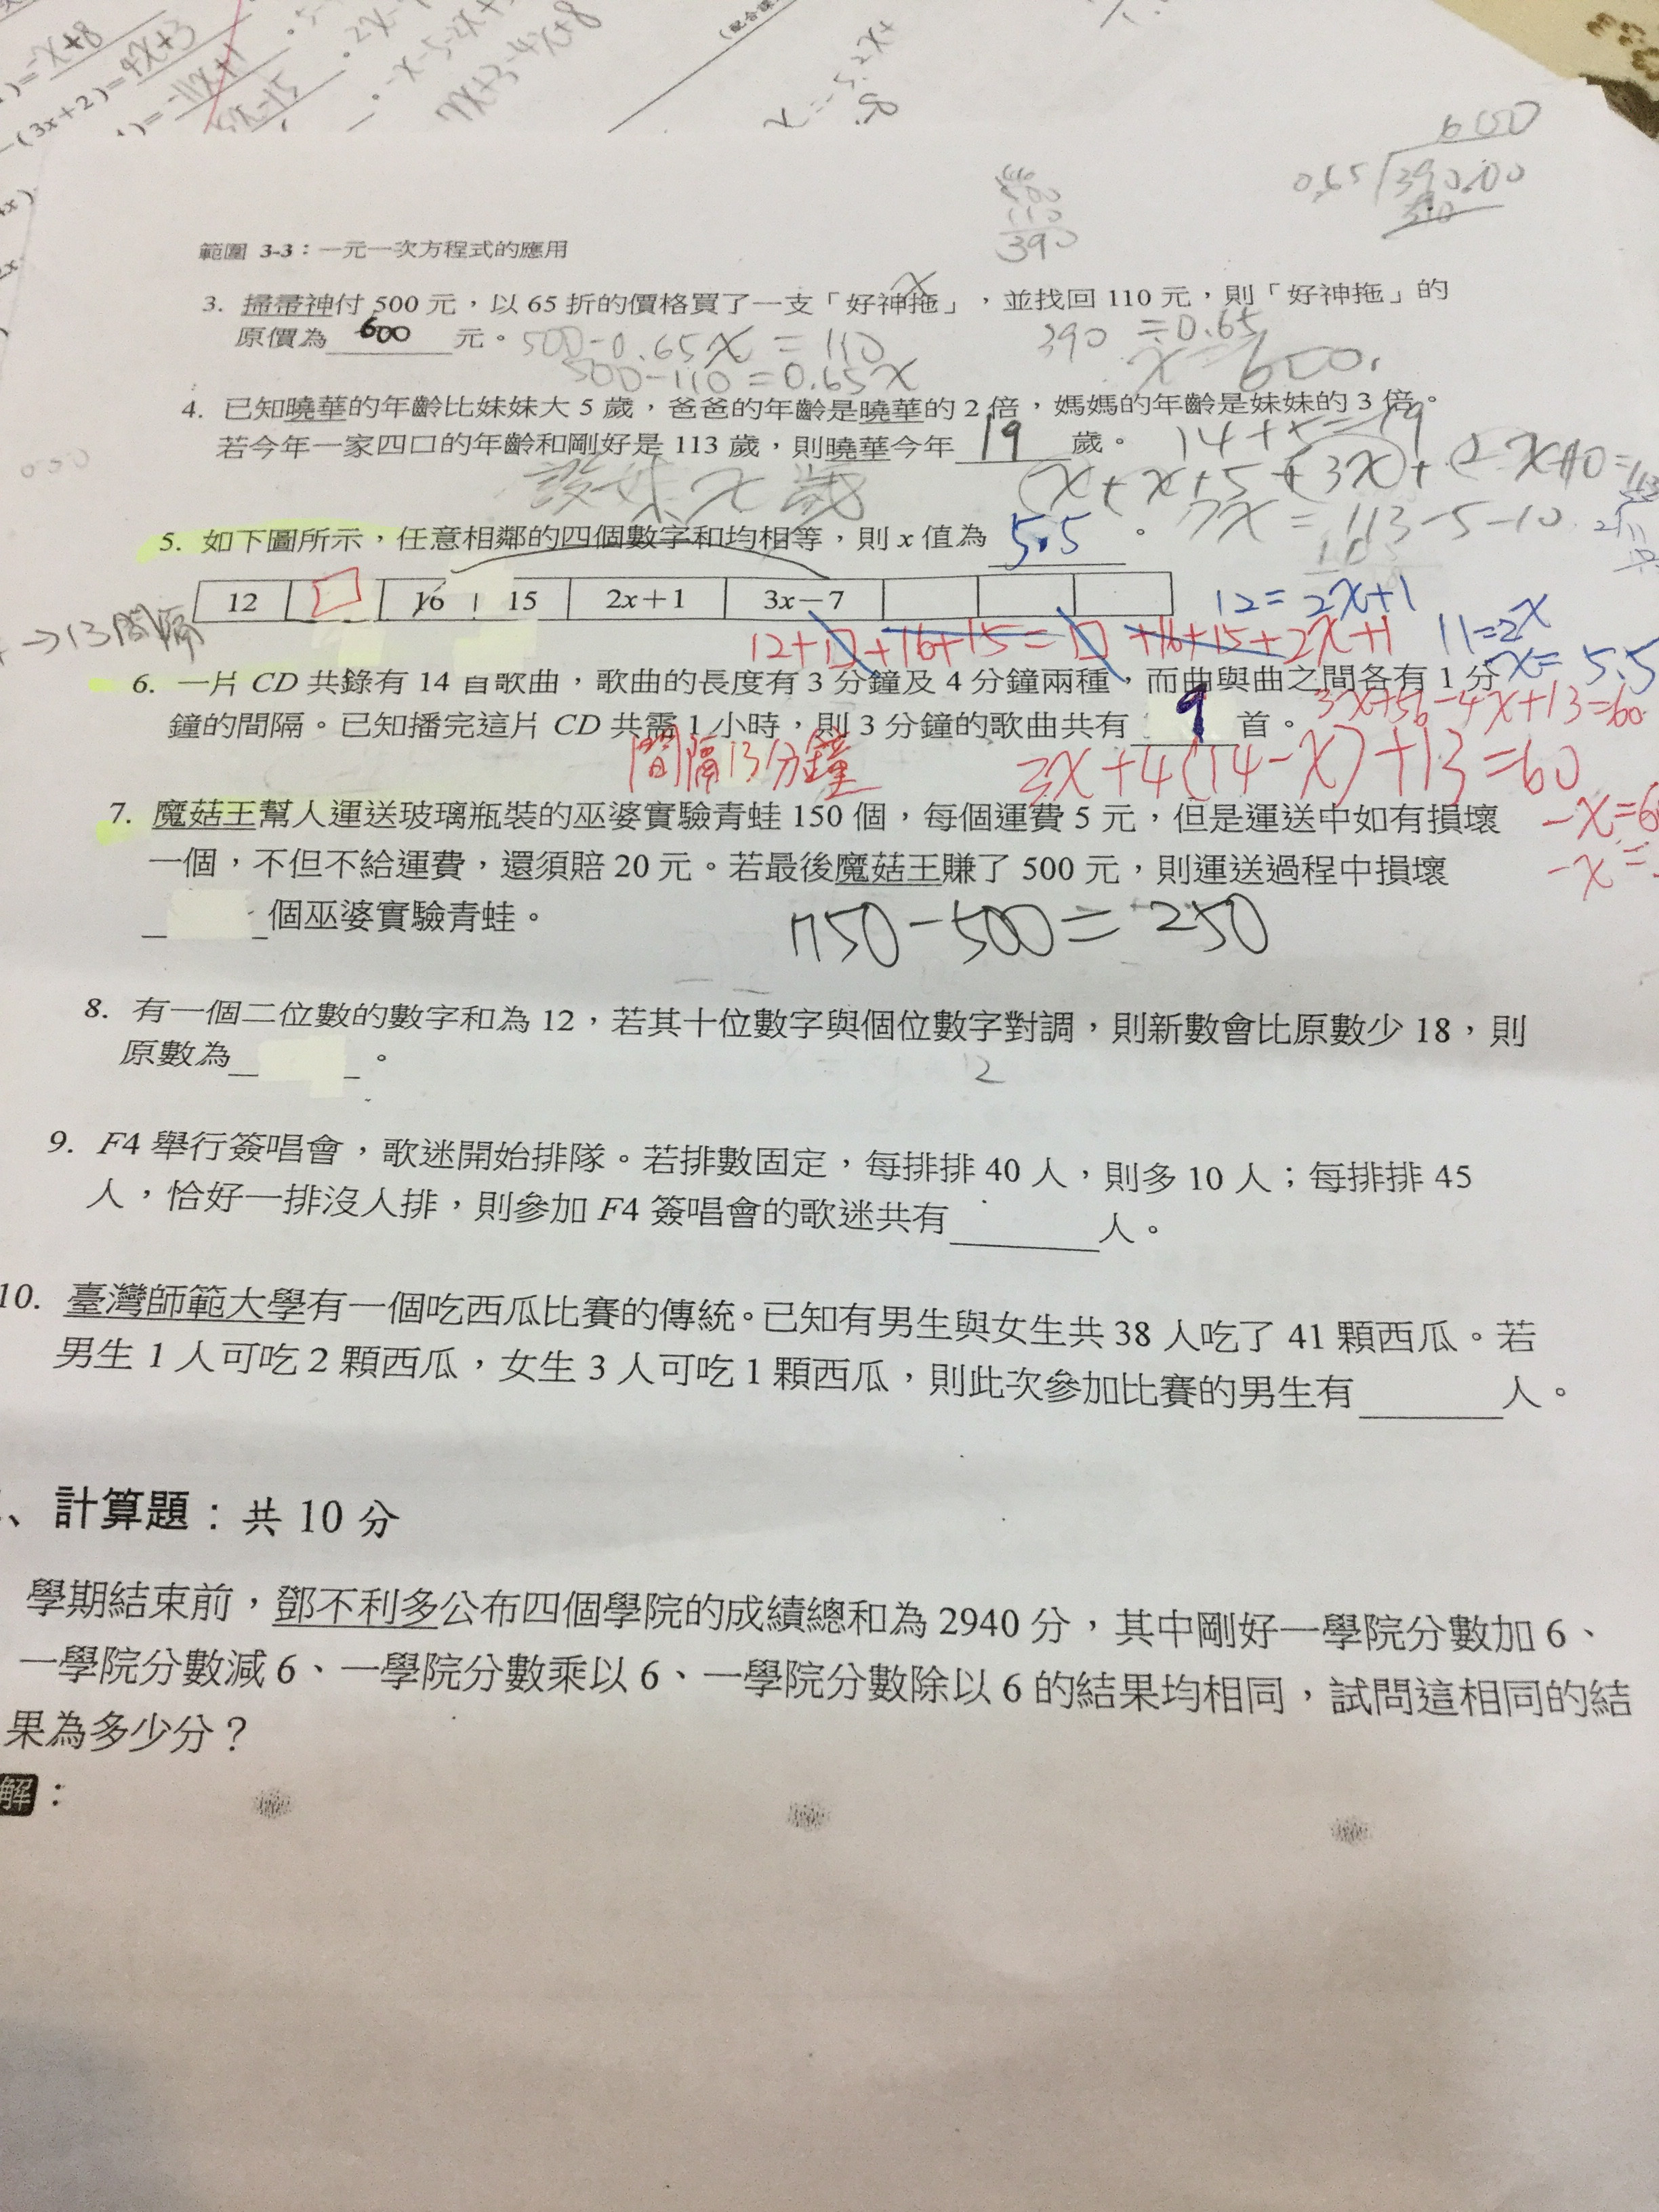 -x+8
-(3x+2)=4x+3
-11x+1
-x-5-2x+
7x+3-4x+8
600
0.65 390.00
390
390
範圍 3-3:一元一次方程式的應用
x
3. 掃帚神付 500 元,以 65 折的價格買了一支「好神拖」,並找回 110 元,則「好神拖」的
原價為 600 元。 500-0.65x=110 390=0.65
500-110=0.65x x=600.
4. 已知曉華的年齡比妹妹大 5 歲,爸爸的年齡是曉華的 2 倍,媽媽的年齡是妹妹的 3 倍。
若今年一家四口的年齡和剛好是 113 歲,則曉華今年 19 歲。 14+5=19
設妹x歲 (x+x+5+(3x)+(2x+10=113
5. 如下圖所示,任意相鄰的四個數字和均相等,則 x 值為 5.5 。 7x=113-5-10
12 □ 16 15 2x+1 3x-7 12=2x+1
→13間隔 12+□+16+15=□+16+15+2x+1 11=2x
x=5.5
6. 一片 CD 共錄有 14 首歌曲,歌曲的長度有 3 分鐘及 4 分鐘兩種,而曲與曲之間各有 1 分
鐘的間隔。已知播完這片 CD 共需 1 小時,則 3 分鐘的歌曲共有 9 首。 3x+56-4x+13=60
間隔13分鐘 3x+4(14-x)+13=60
7. 魔菇王幫人運送玻璃瓶裝的巫婆實驗青蛙 150 個,每個運費 5 元,但是運送中如有損壞 -x=6
一個,不但不給運費,還須賠 20 元。若最後魔菇王賺了 500 元,則運送過程中損壞 -x=
個巫婆實驗青蛙。 750-500=250
8. 有一個二位數的數字和為 12,若其十位數字與個位數字對調,則新數會比原數少 18,則
原數為 。 12
9. F4 舉行簽唱會,歌迷開始排隊。若排數固定,每排排 40 人,則多 10 人;每排排 45
人,恰好一排沒人排,則參加 F4 簽唱會的歌迷共有 人。
10. 臺灣師範大學有一個吃西瓜比賽的傳統。已知有男生與女生共 38 人吃了 41 顆西瓜。若
男生 1 人可吃 2 顆西瓜,女生 3 人可吃 1 顆西瓜,則此次參加比賽的男生有 人。
、計算題:共 10 分
學期結束前,鄧不利多公布四個學院的成績總和為 2940 分,其中剛好一學院分數加 6、
一學院分數減 6、一學院分數乘以 6、一學院分數除以 6 的結果均相同,試問這相同的結
果為多少分?
解: